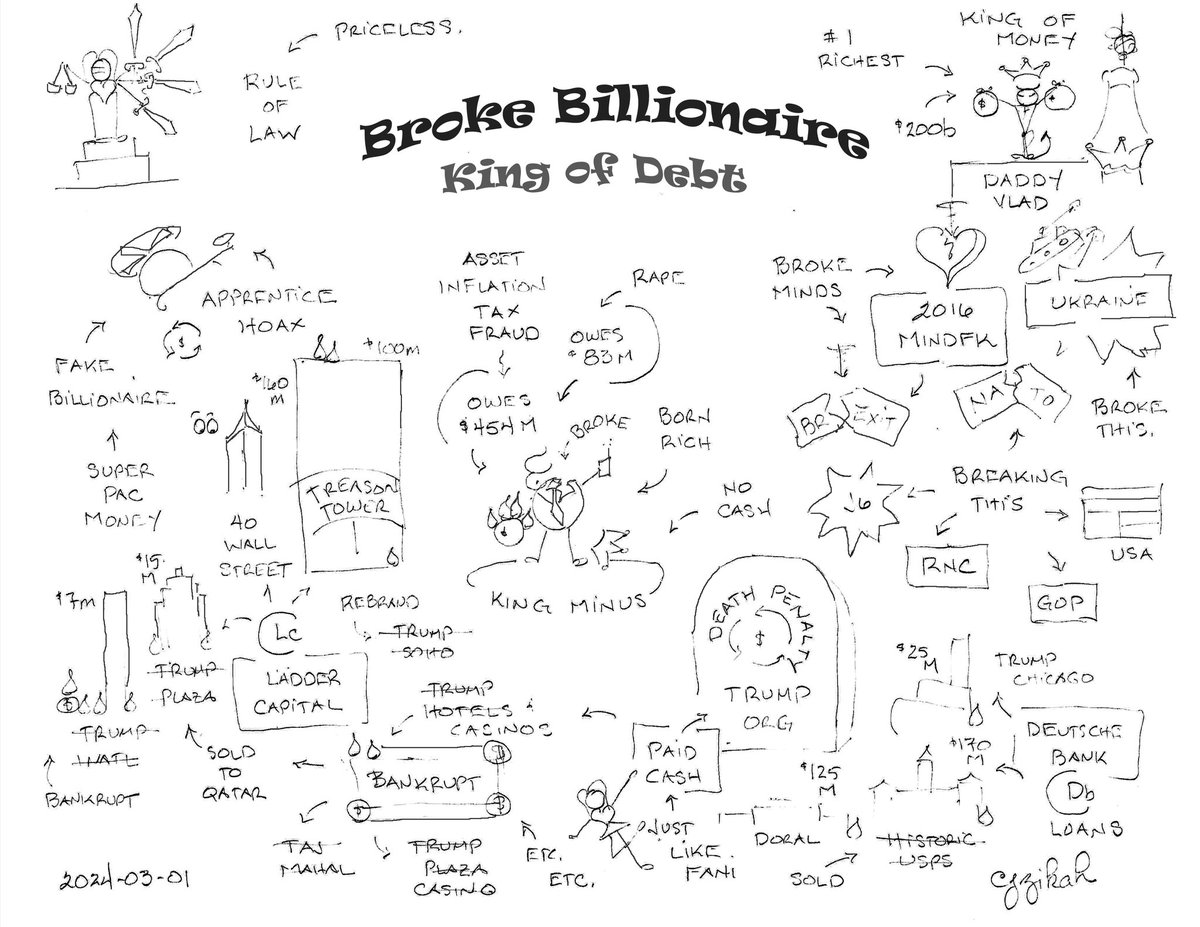 PRICELESS.
RULE
OF
LAW
Broke Billionaire
King of Debt
#1
RICHEST
KING OF
MONEY
$200b
$
DADDY
VLAD
APPRENTICE
HOAX
$
FAKE
BILLIONAIRE
SUPER
PAC
MONEY
ASSET
INFLATION
TAX
FRAUD
RAPE
OWES
$83M
OWES
$454M
BROKE
BORN
RICH
NO
CASH
$
KING MINUS
BROKE
MINDS
2016
MINDFK
UKRAINE
BR
EXIT
NA
TO
BROKE
THIS.
BREAKING
THIS
J6
RNC
GOP
USA
$100m
$160
M
TREASON
TOWER
40
WALL
STREET
$15
M
$7m
$
TRUMP
PLAZA
TRUMP
INATL
BANKRUPT
SOLD
TO
QATAR
LC
LADDER
CAPITAL
REBRAND
TRUMP
SOHO
TRUMP
HOTELS &
CASINOS
BANKRUPT
$
$
$
TAJ
MAHAL
TRUMP
PLAZA
CASINO
ETC.
ETC.
DEATH PENALTY
$
TRUMP
ORG
PAID
CASH
JUST
LIKE
FANI
$125
M
DORAL
SOLD
$25
M
TRUMP
CHICAGO
DEUTSCHE
BANK
Db
LOANS
$170
M
HISTORIC
USPS
2024-03-01
czikah